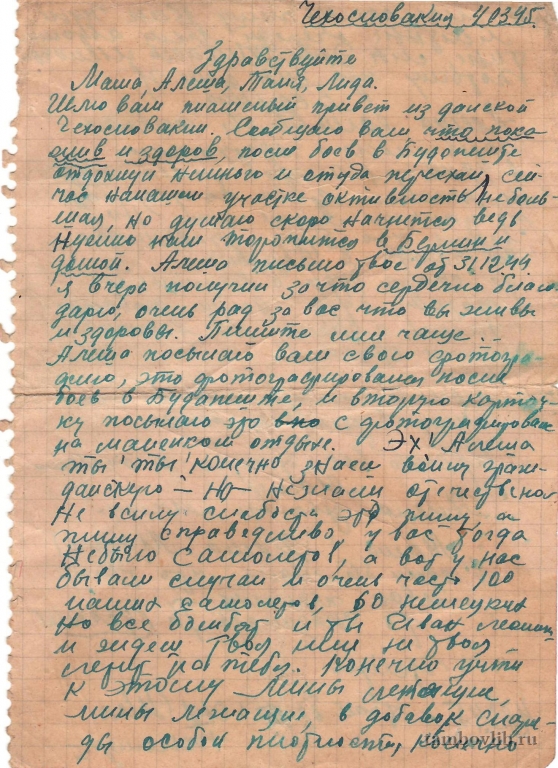 Чехословакия 4 03 45.
Здравствуйте
Маша, Алеша, Таня, Лида.
Шлю вам письменый привет из
Чехословакии. Сообщаю вам что пока
жив и здоров, после боев в Будопеште
отдохнули немного и сюда переехали, сей-
час на нашем участке активность неболь-
шая, но думаю скоро начнется ведь
нужно нам торопится в Берлин и
домой. Алеша письмо твое от 31.12.44
я вчера получил за что сердечно благо
дарю, очень рад за вас что вы живы
и здоровы. Пишите мне чаще.
Алеша посылаю вам свою фотогра-
фию, это фотографировался после
боев в Будапеште, и вторую карточ-
ку посылаю это с фотографировался
на маленьком отдыхе. Эх! Алеша
ты! ты! конечно знаеш войну граж-
данскую – но незнаеш отечественой
Не всилу слабости это пишу, а
пишу справедливо, у вас тогда
небыло самолетов, а вот у нас
бывали случаи и очень часто 100
наших самолетов, 60 немецких
но все бомбят и ты Иван лежиш
и ждеш твоя или не твоя
летит на тебя. Конечно учти
к этому мины летящие,
мины лежащие, в добавок снаря-
ды особой плотности, конечно
tambovlib.ru